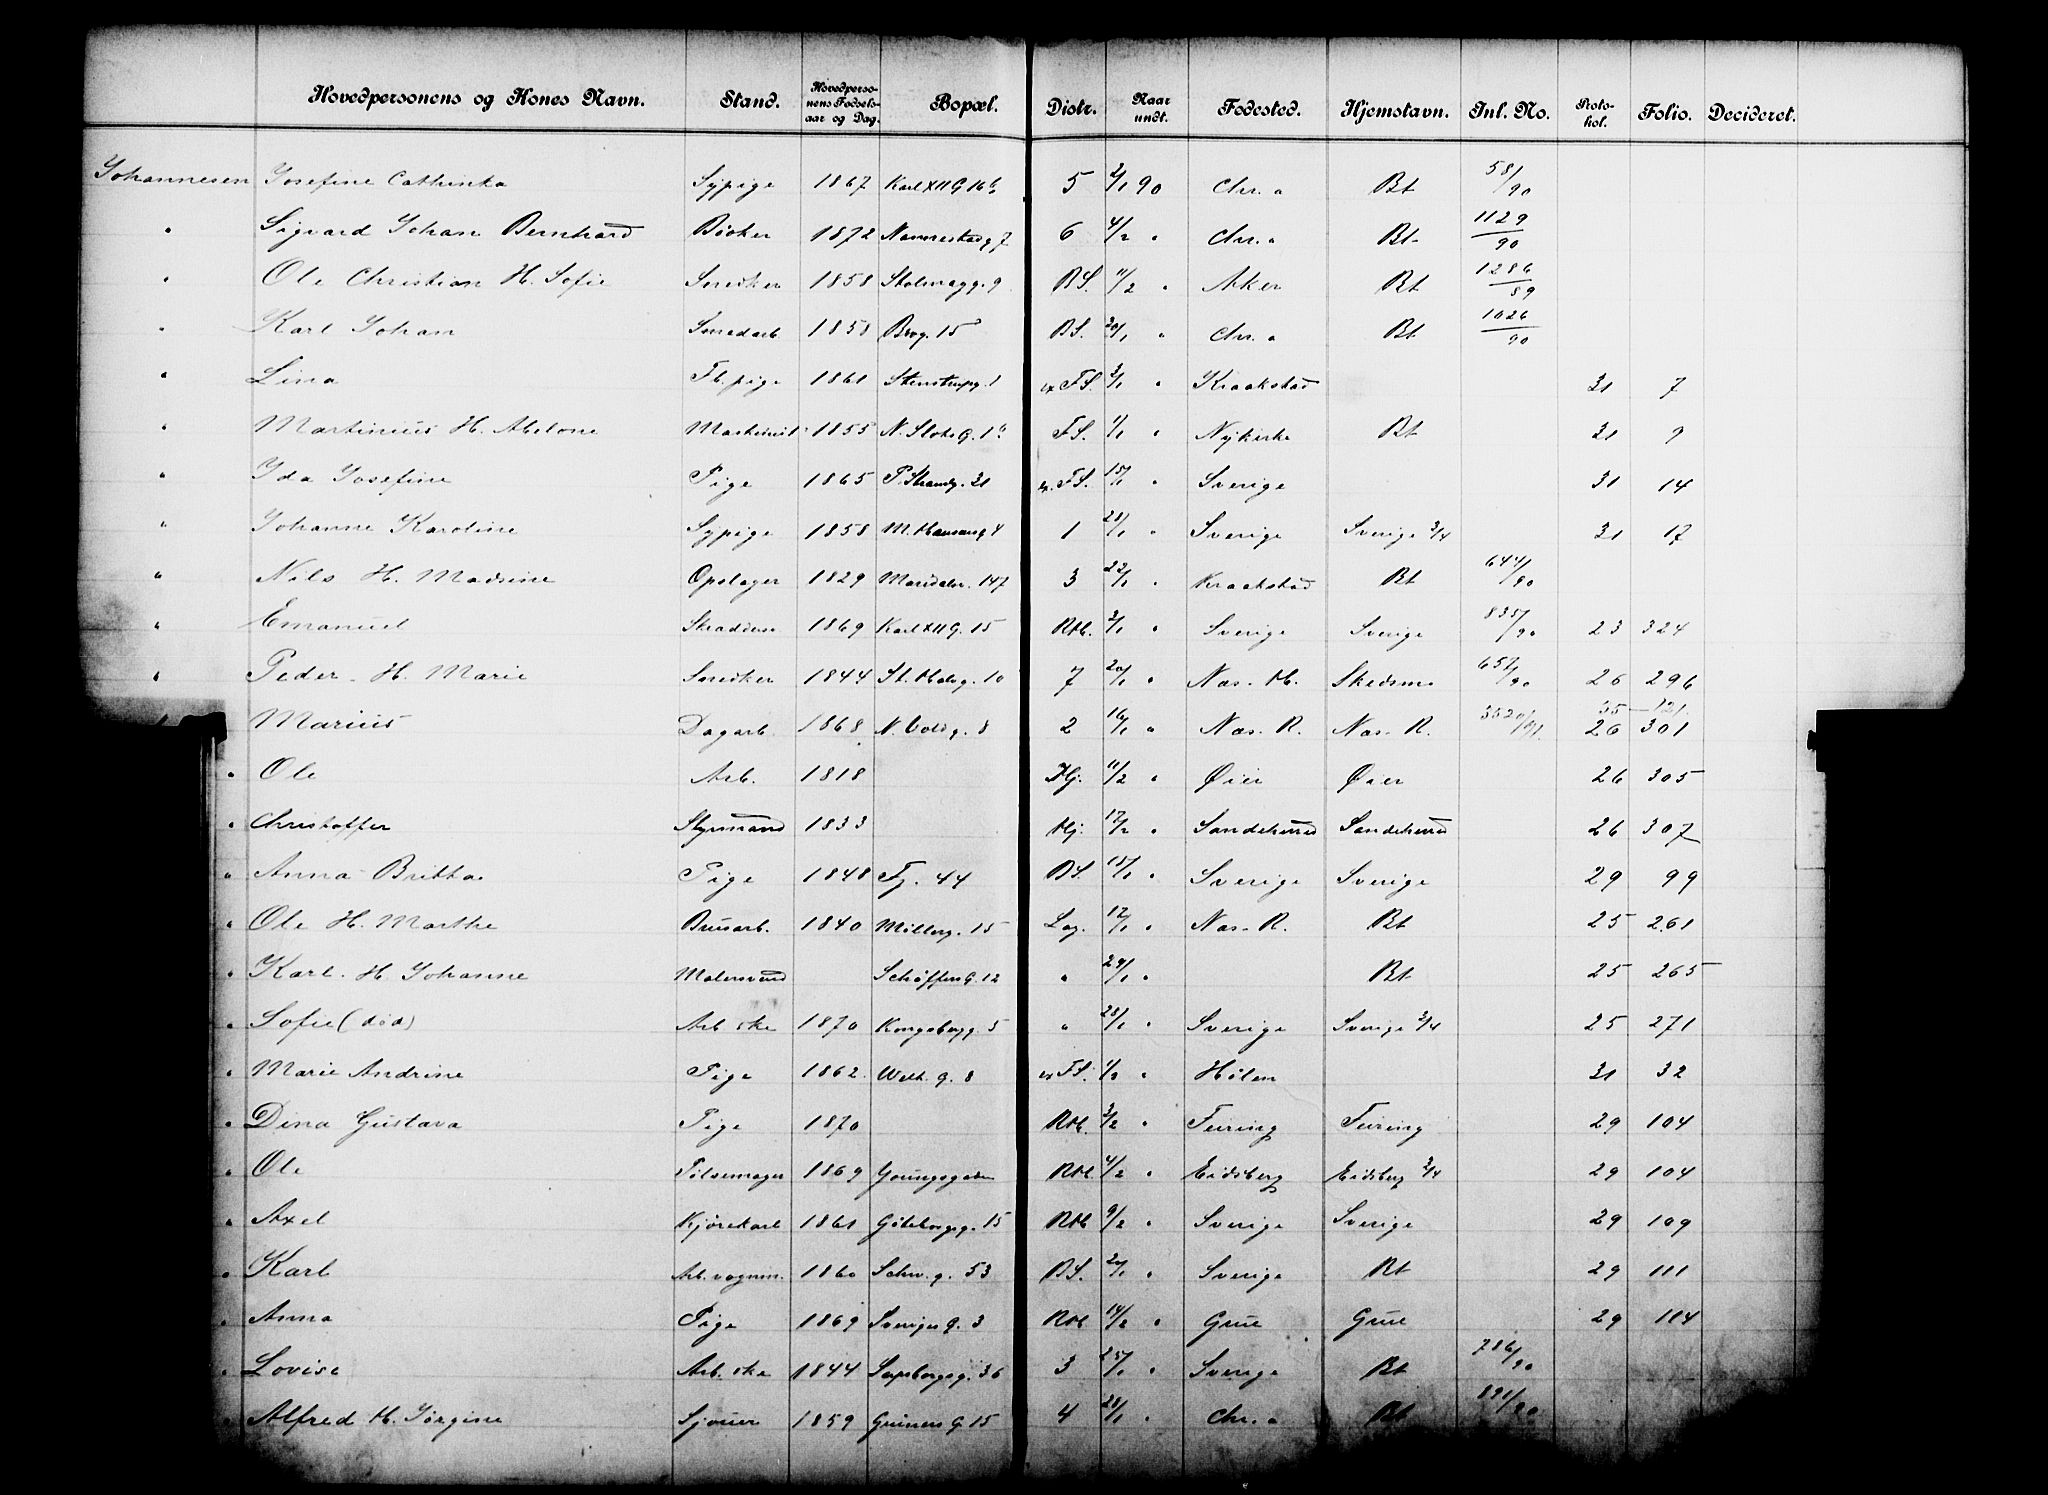 Hovedpersonens og Kones Navn. Stand. Hovedperso-nens Fødsels-aar og Dag. Bopæl. Distr. Naar undt. Fødested. Hjemstavn. Inl. No. Proto-kol. Folio. Decideret.
Johannesen Josefine Cathinka Sypige 1867 Karl XII G. 16 b 5 2/1 90 Chr.a Bt 58/90
" Sigvard Johan Bernhard Bøker 1872 7 6 4/2 " Chr.a Bt 1129/90
" Ole Christian H. Sofie Snedker 1858 Stolmagg. 9 BS. 11/2 " Aker Bt 1286/89
" Karl Johan Smedarb. 1858 Brog. 15 BS. 20/1 " Chr.a Bt 1026/90
" Lina Fb.pige 1861 Stenstrupg. 1 ex FS. 3/1 " Kraakstad 31 7
" Martinius H. Abelone Maskinist 1855 N. Slots G. 1 FS. 1/1 " Nykirke Bt 31 9
" Ida Josefine Pige 1865 P. Strandg. 31 ex. FS. 15/1 " Sverige 31 14
" Johanne Karoline Sypige 1858 M. Hansensg 4 1 28/1 " Sverige Sverige 3/4 31 17
" Nils H. Madsine Opslager 1829 Maridalsv. 147 3 22/1 " Kraakstad Bt 644/90
" Emanuel Skrædder 1869 Karl XII G. 15 RH. 3/1 " Sverige Sverige 835/90 23 324
" Peder H. Marie Snedker 1844 St. Halvg. 10 7 20/1 " Næs. H. Skedsmo 657/90 26 296
" Marius Dagarb. 1868 N. Voldg. 8 2 16/1 " Næs. R. Næs. R. 3520/91 35 121 26 301
" Ole Arb. 1818 Hj. 11/2 " Øier Øier 26 305
" Christoffer Styrmand 1833 Hj. 17/2 " Sandeherred Sandeherred 26 307
" Anna Britta Pige 1848 Fj. 44 BS. 15/1 " Sverige Sverige 29 99
" Ole H. Marthe Brusarb. 1840 Møllerg. 15 Lag. 12/1 " Næs. R. Bt 25 261
" Karl H. Johanne Malersvend Schøffers G. 12 " 24/1 " Bt 25 265
" Sofie (død) Arb.ske 1870 Kongsbergg. 5 " 28/1 " Sverige Sverige 3/4 25 271
" Marie Andrine Pige 1862 Welh. g. 8 ex FS. Hølen 31 32
" Dina Gustava Pige 1870 RH. 3/2 " Feiring Feiring 29 104
" Ole Pølsemager 1869 Youngsgaden RH. 4/2 " Eidsberg Eidsberg 3/4 29 104
" Axel Kjørekarl 1861 Gøteborgsg. 15 RH 9/2 " Sverige Sverige 29 109
" Karl Arb. vognm. 1860 Schw. g. 53 BS. 20/1 " Sverige Bt 29 111
" Anna Pige 1869 Sveriges G. 3 RH 14/2 " Grue Grue 29 114
" Lovise Arb.ske 1844 Sarpsborgsg. 36 3 25/1 " Sverige Bt 786/90
" Alfred H. Jørgine Sjouer 1859 Grüners G. 15 4 28/1 " Chr.a Bt 891/90